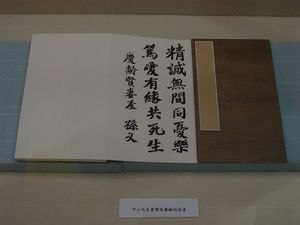 精誠無間同憂樂
篤愛有緣共死生
慶齡賢妻鑒 孫文